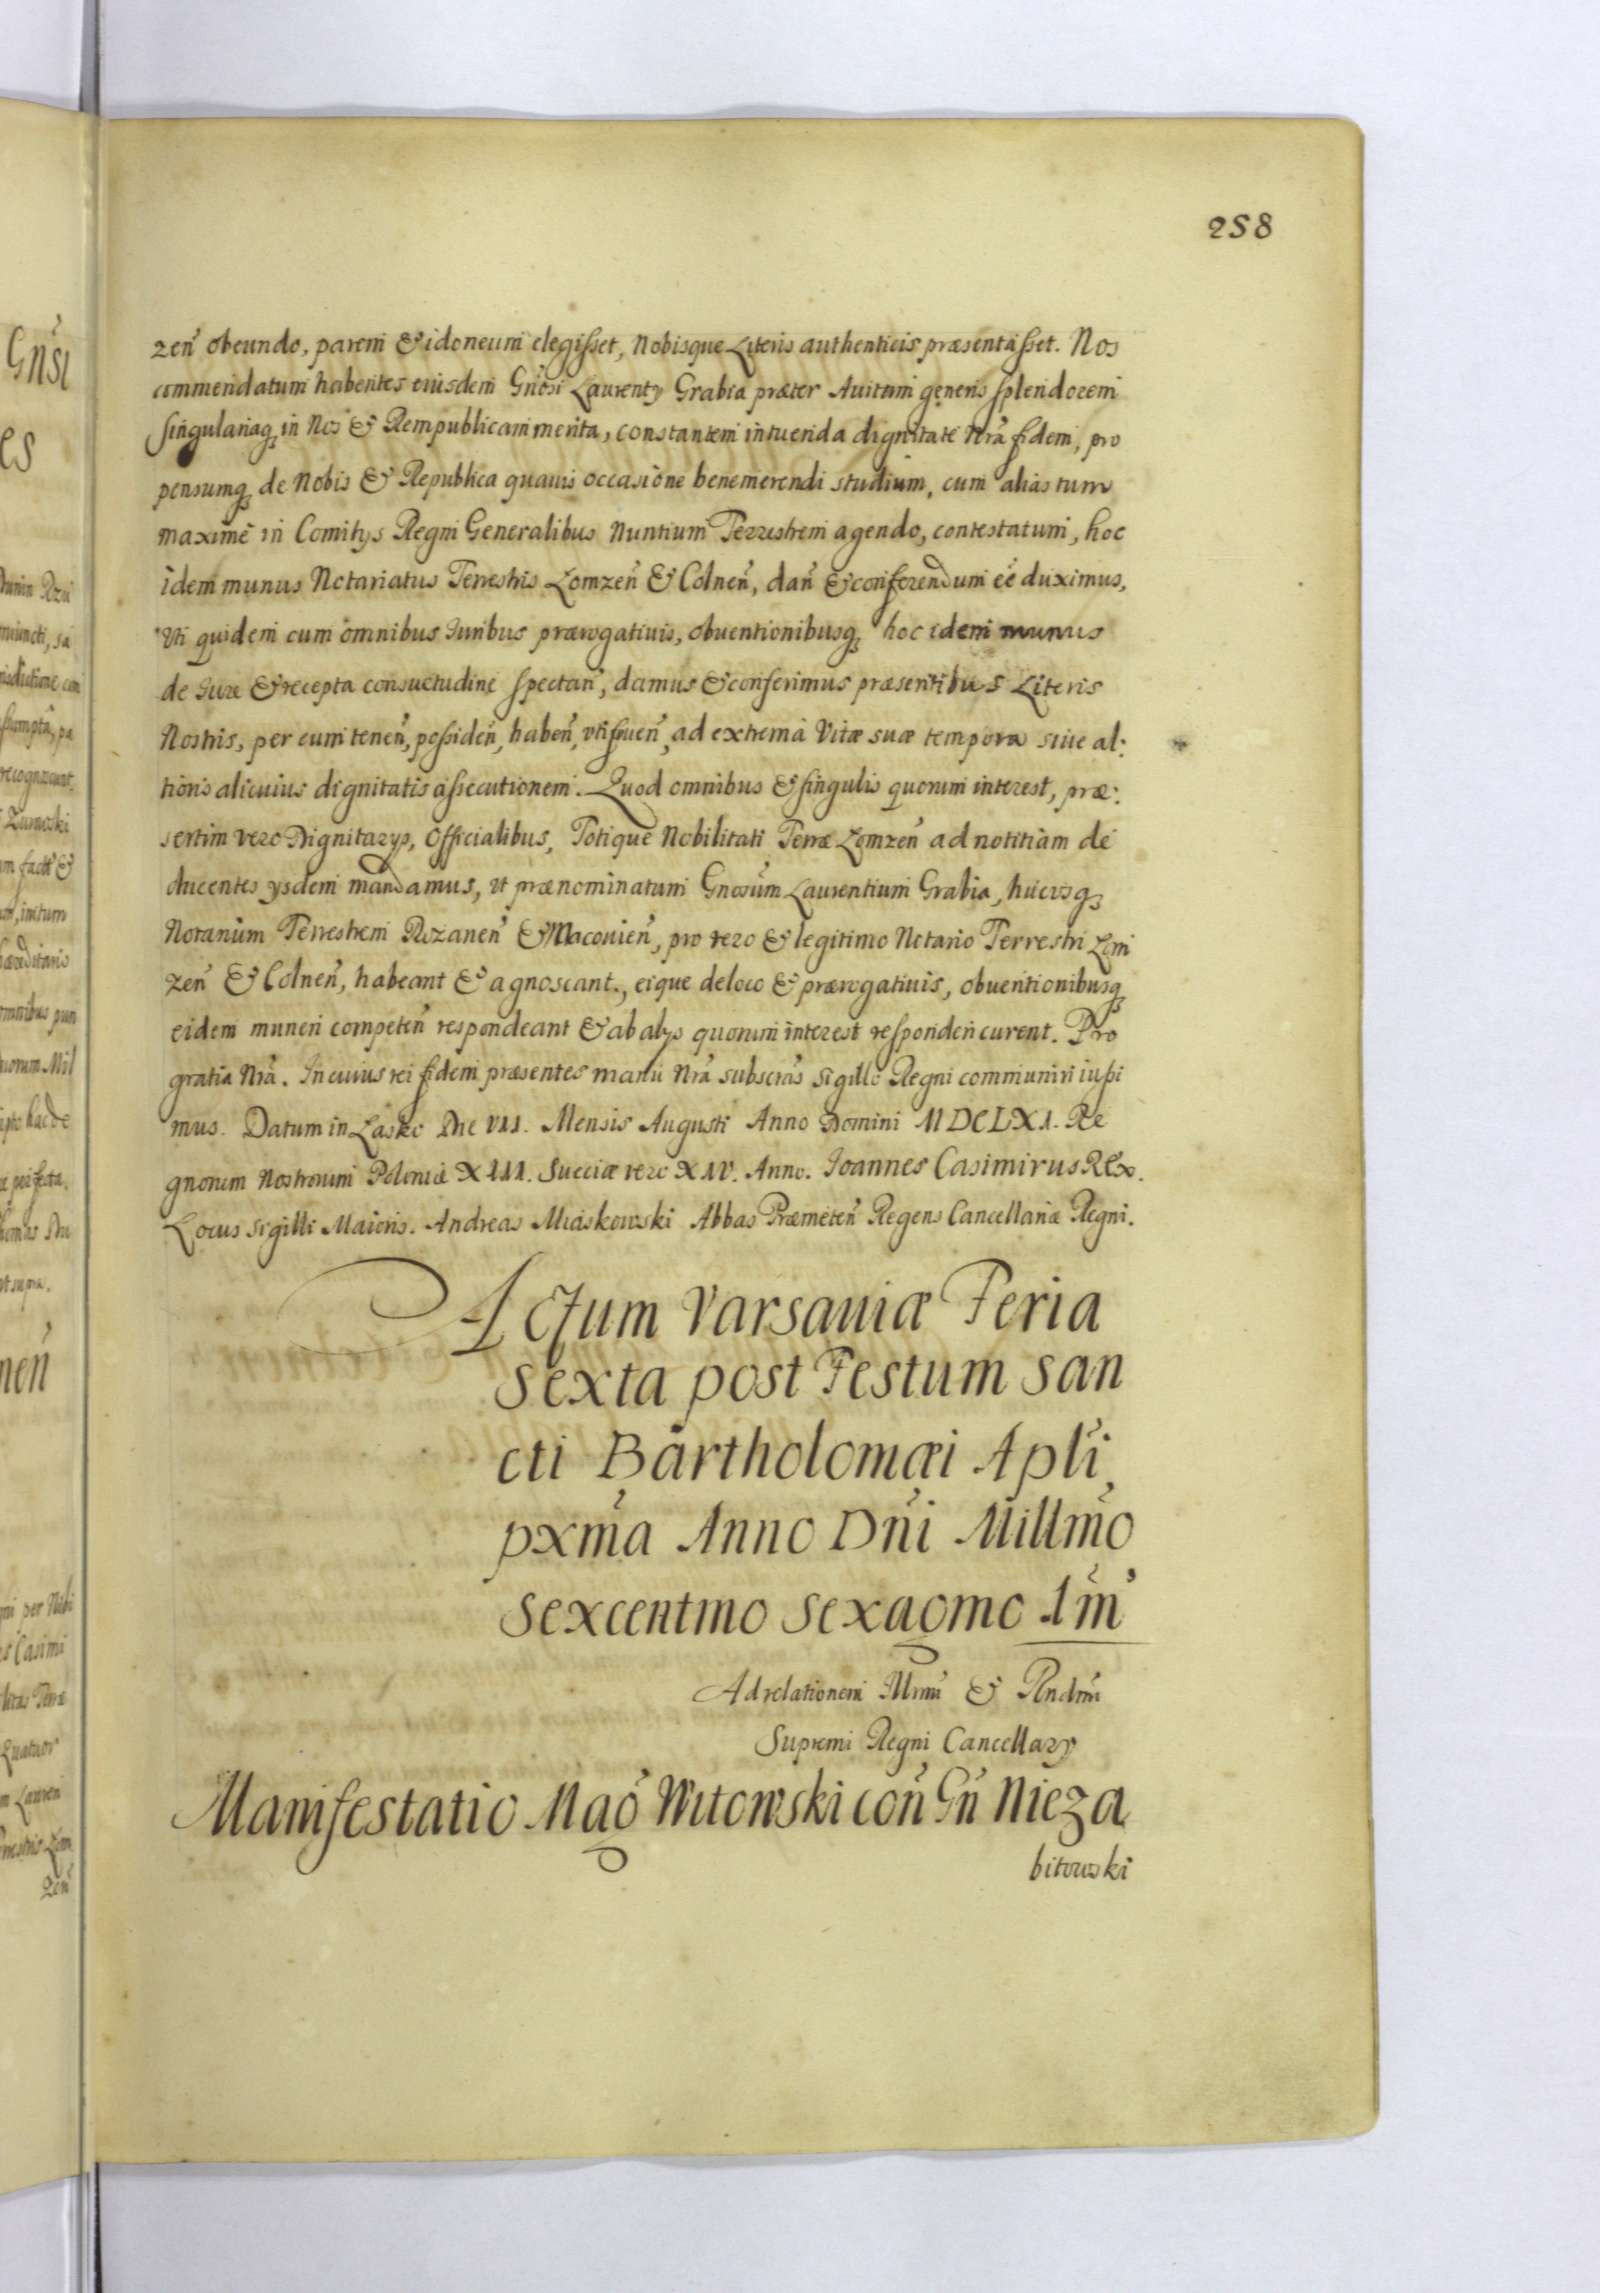 258
zeñ obeundo, parem & idoneum elegisset, Nobisque Literis authenticis præsentasset. Nos
commendatum habentes eiusdem Gñosi Laurenty Grabia præter Avitum generis splendorem
singulariaq; in Nos & Rempublicam merita, constantem intuenda dignitate Nrã fidem, pro
pensumq; de Nobis & Republica quavis occasione benemerendi studium, cum alias tum
maxime in Comitys Regni Generalibus Nuntium Terrestrem agendo, contestatum, hoc
idem munus Notariatus Terrestris Lomzeñ & Colneñ, dañ & conferendum eê duximus,
Uti quidem cum omnibus Iuribus prærogativis, obventionibusq; hoc idem munus
de Iure & recepta consuetudine spectañ, damus & conferimus præsentibus Literis
Nostris, per eum teneñ, possideñ, habeñ, utifrueñ, ad extrema Vitæ suæ tempora sive al:
tioris alicuius dignitatis assecutionem. Quod omnibus & singulis quorum interest, præ:
sertim vero Dignitarys, Officialibus, Totique Nobilitati Terræ Lomzeñ ad notitiam de
ducentes ysdem mandamus, ut prænominatum Gnosum Laurentium Grabia, hucusq;
Notarium Terrestrem Rozaneñ & Macovieñ, pro vero & legitimo Notario Terrestri Lom
zeñ & Colneñ, habeant & agnoscant, eique de loco & prærogativis, obventionibusq;
eidem muneri competeñ respondeant & ab alys quorum interest responderi curent. Pro
gratia Nrã. In cuius rei fidem præsentes manu Nrã subscras Sigillo Regni communiri iussi
mus. Datum in Lasko Die VII. Mensis Augusti Anno Domini MDCLXI. Re
gnorum Nostrorum Poloniæ XIII. Sueciæ vero XIV. Anno. Ioannes Casimirus REx.
Locus Sigilli Maioris. Andreas Miaskowski Abbas Præmeteñ Regens Cancellariæ Regni.
Actum Varsaviæ Feria
Sexta post Festum San
cti Bartholomæi Apli
pxma Anno Dñi Millmo
Sexcentmo Sexagmo 1m
Ad relationem Illmi & Rndmi
Supremi Regni Cancellary
Manifestatio Mag Witowski coñ Gñ Nieza
bitowski